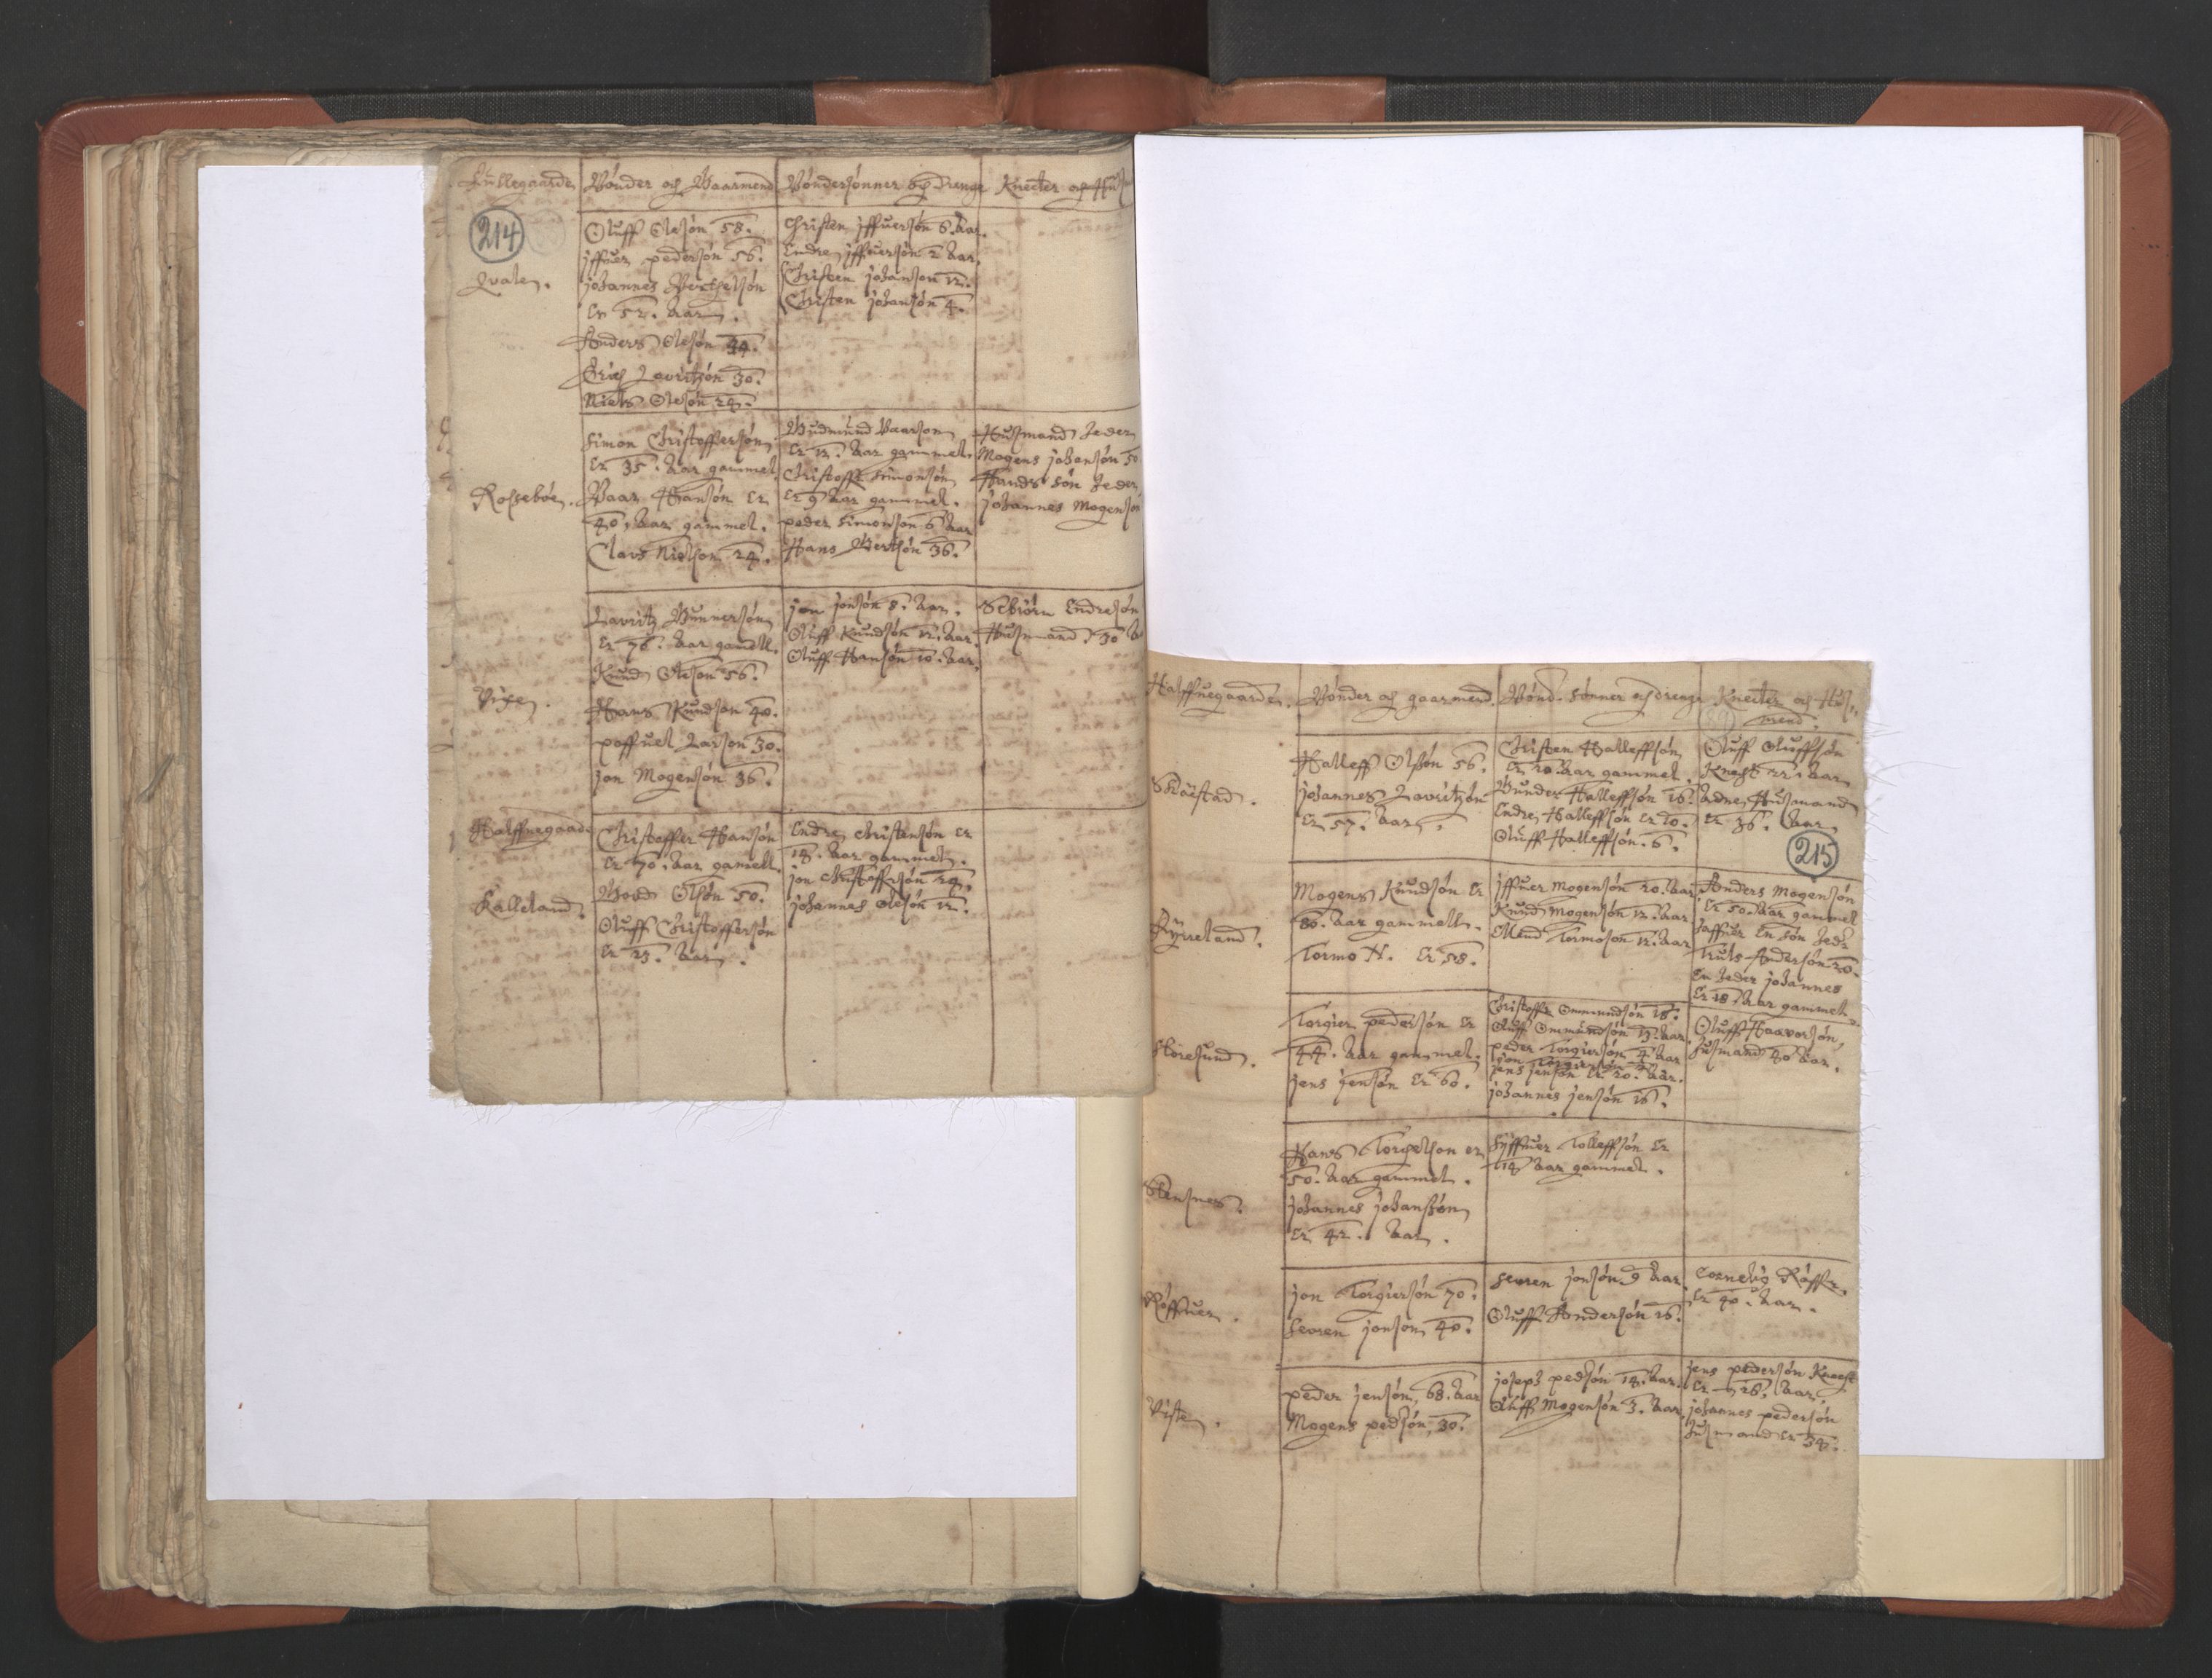 Fullegaarde Bønder och Gaarmend Bøndersønner och Drenge Knecter och Huß
214
Qualen.
Oluff Olesøn 58.
jffuer pedersøn 56.
johannes Berthelsøn
er 52. aar.
Anders Olesøn 44.
Erich Lauritzøn 30.
Niels Olesøn 24.
Christen jffuersøn 8. aar.
Endre jffuersøn 2 aar.
Christen johansøn 12.
Christen johansøn 4.
Rossebøe.
Simon Christoffersøn
er 35. aar gammel
Baar Hansøn er
40. aar gammel.
Claus Nielsøn 24.
Gudmund Baarsøn
er 12. aar gammel.
Christoffer Simonsøn
er 9 aar gammel.
peder Simonsøn 6 aar
Hans Bertsøn 36.
Hußmand heder
Mogens johansøn 50
Hands søn heder
johannes Mogensøn
Vige.
Lauritz Gunnersøn
er 76. aar gamell.
Knud Olesøn 56.
Hans Knudsøn 40.
poffuel Larsøn 30.
jon Mogensøn 36.
jon jonsøn 8. aar.
Oluff Knudsøn 12. aar.
Oluff Hansøn 10. aar.
Sebiørn Endresøn
Hußmand 30
Halffuegaarde
Kalleland.
Christoffer Hansøn
er 70. aar gamell.
Olsøn 50.
Oluff Christoffersøn
er 23. aar.
Endre Christensøn er
14. aar gammel.
jon Christoffersøn 24.
johannes Olesøn 12.
Halffuegaarde. Bønder och gaarmend. Bønd. sønner och drenge Knecter och Huß
mend.
Skaastad.
Halleff Olsøn 56.
johannes Lauritzøn
er 57. aar.
Christen Halleffsøn
er 20 aar gammel.
Gunder Halleffsøn 16.
Endre Halleffsøn er 10.
Oluff Halleffsøn. 6.
Oluff Oluffsøn
Knegt 22. aar
Adne Hußmand
er 36. aar
215
Kyrreland.
Mogens Knudsøn er
80. aar gammell.
Tormo N. er 58.
jffuer Mogensøn 20. aar
Knud Mogensøn 12. aar
Elend Tormosøn 12. aar
Anders Mogensøn
er 50. aar gammel
haffuer en søn hedr
Truls Andersøn 20.
en heder johannes
er 18. aar gammel.
Storesund.
Torgier pedersøn er
44. aar gammel.
jens jensøn er 60.
Christoffer Ommundsøn 18.
Oluff Ommundsøn 13. aar
peder Torgiersøn 4 aar
jens jensøn er 20. aar.
johannes jensøn 16.
Oluff Haavorsøn,
hußmand 40 aar.
Stensnes.
Hans Torgelsøn er
50. aar gammel.
johannes johansøn
er 42. aar.
Siffuer Tolleffsøn er
14 aar gammel.
Røffuer.
jon Torgiersøn 70.
Seuren jonsøn 40.
Seuren jonsøn 9 aar.
Oluff Andersøn 16.
Cornelig Røffer.
er 40. aar.
Viste.
peder jensøn, 68. aar
Mogens pedsøn, 30.
joseph pedsøn 14. aar.
Oluff Mogensøn 3. aar
jens pedersøn Knegt
er 26. aar,
johannes pedersøn
hußmand er 34.